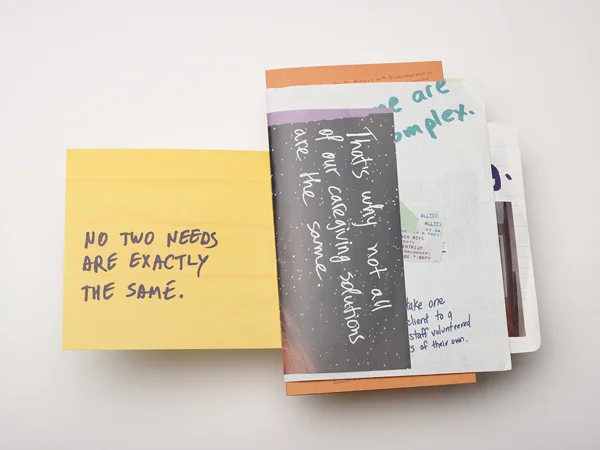 NO TWO NEEDS
ARE EXACTLY
THE SAME.
are
omplex.
That's why not all
of our caregiving solutions
are the same.
take one
client to a
staff volunteered
s of their own.